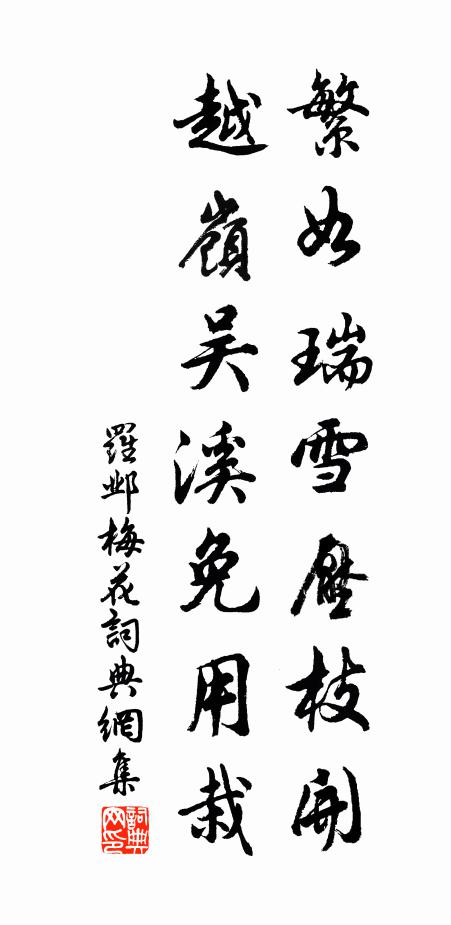 繁如瑞雪壓枝開
越嶺吳溪免用栽
羅鄴梅花詞典網集
詞典网印